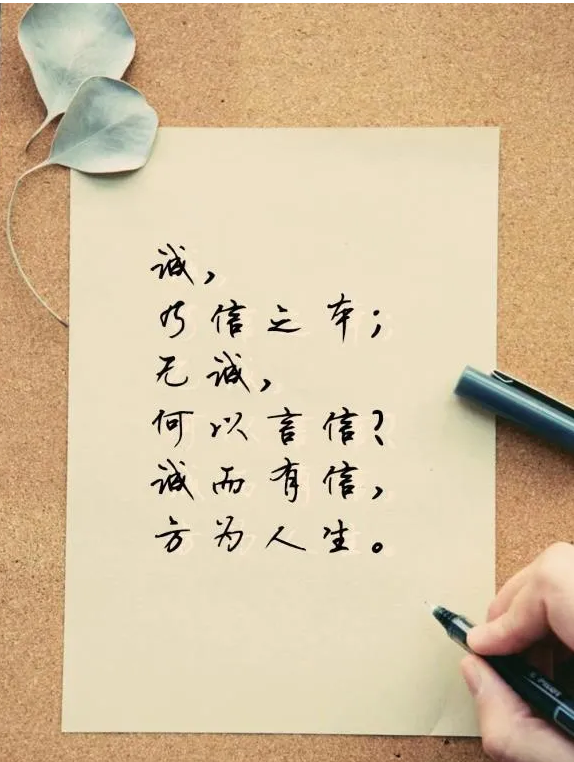 诚，
乃信之本；
无诚，
何以言信？
诚而有信，
方为人生。